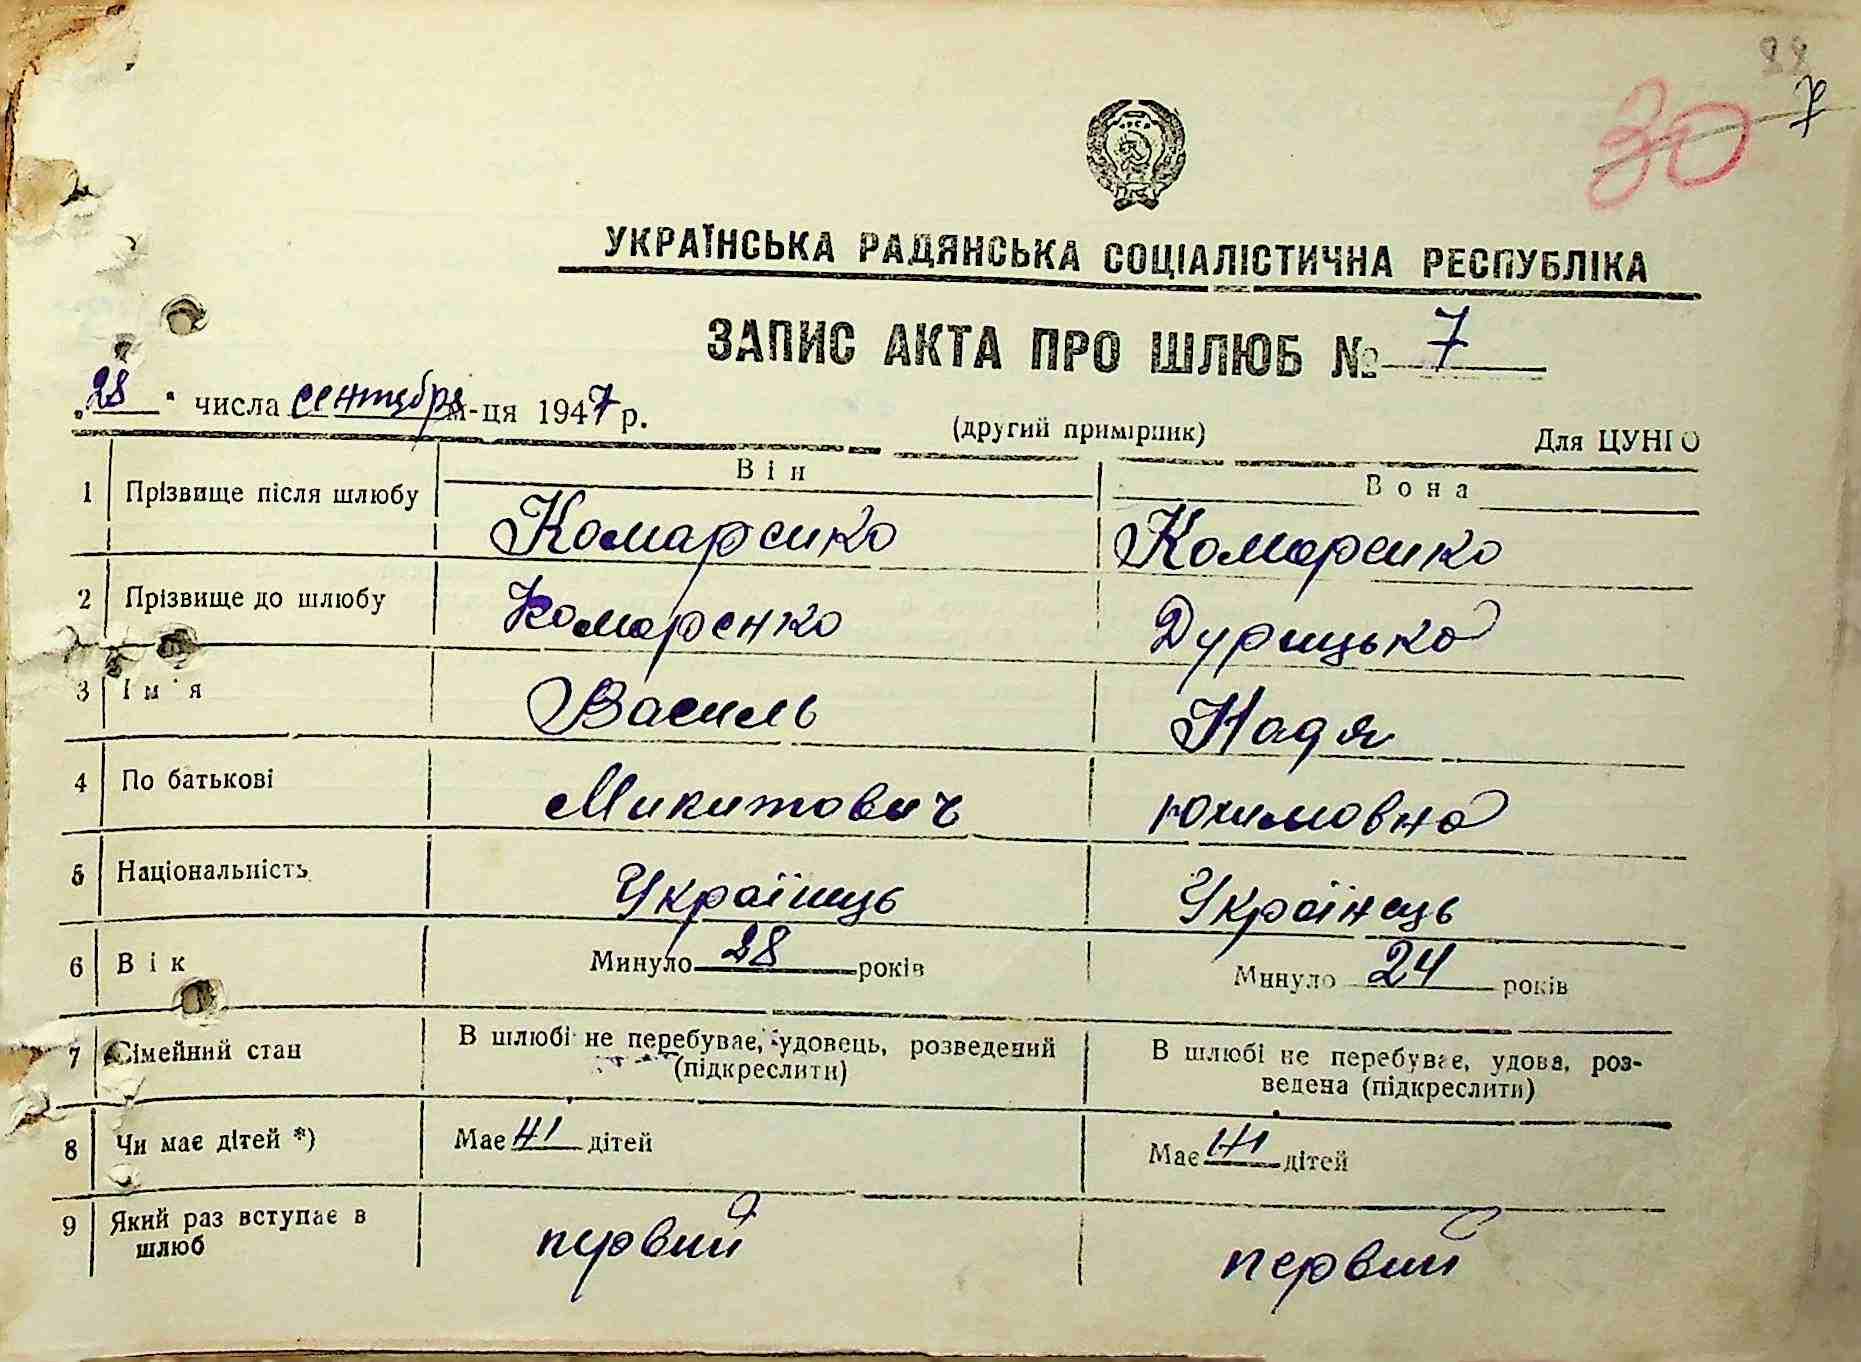 30 7
УКРАЇНСЬКА РАДЯНСЬКА СОЦІАЛІСТИЧНА РЕСПУБЛІКА
ЗАПИС АКТА ПРО ШЛЮБ № 7
„28“ числа сентября м-ця 1947 р.
(другий примірник) Для ЦУНГО
Він Вона
1 Прізвище після шлюбу Комаренко Комаренко
2 Прізвище до шлюбу Комаренко Дурицька
3 Ім'я Василь Надя
4 По батькові Микитович Юхимовна
5 Національність Українець Українець
6 Вік Минуло 28 років Минуло 24 років
7 Сімейний стан В шлюбі не перебуває, удовець, розведений (підкреслити) В шлюбі не перебуває, удова, роз-
ведена (підкреслити)
8 Чи має дітей *) Має ні дітей Має ні дітей
9 Який раз вступає в шлюб первий первий